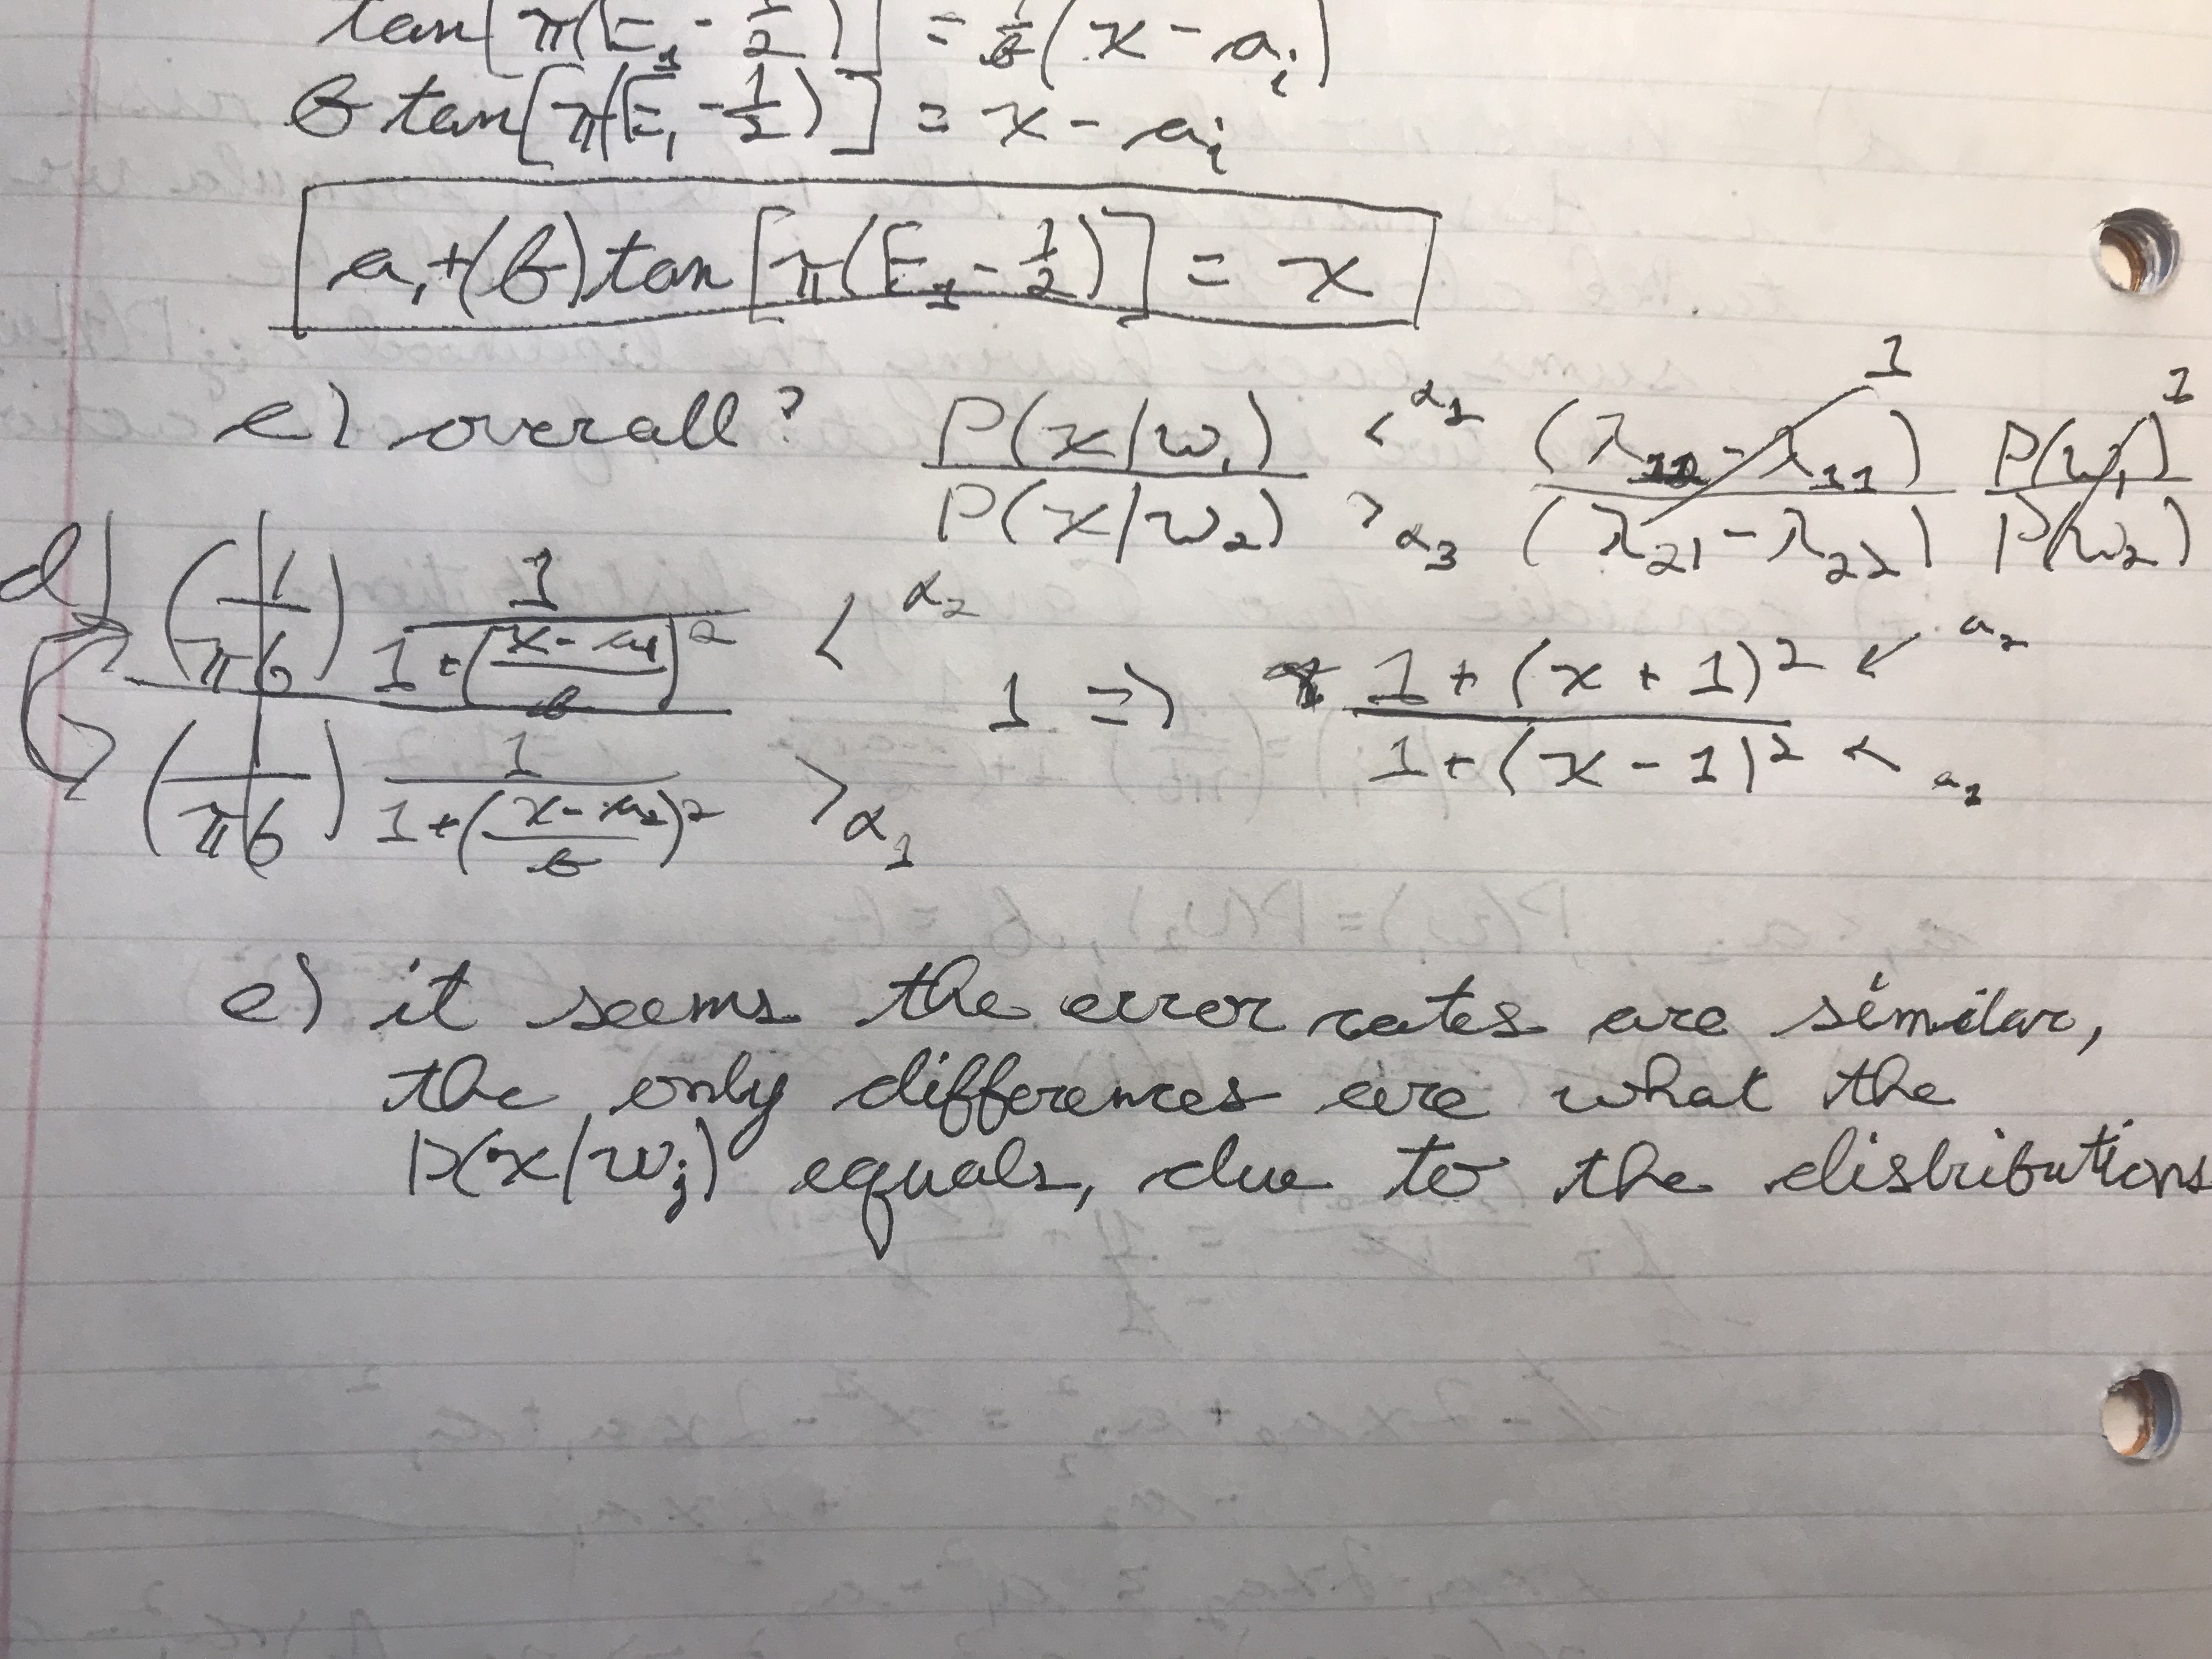 tan[π(E₁ - 1/2)] = 1/b (x - aᵢ)
b tan[π(E₁ - 1/2)] = x - aᵢ
a₁ + (b) tan[π(E₁ - 1/2)] = x
e) overall? P(x|w₁) / P(x|w₂) <α₁ >α₃ (λ₁₂ - λ₁₁) / (λ₂₁ - λ₂₂) 1 P(w₁) / P(w₂) 1
d (1/πb) 1 / 1 + ((x - a₁)/b)² < α₂
(1/πb) 1 / 1 + ((x - a₂)/b)² > α₁ 1 ⇒ 1 + (x + 1)² / 1 + (x - 1)² < α₂
e) it seems the error rates are similar,
the only differences are what the
P(x|wⱼ) equals, due to the distributions